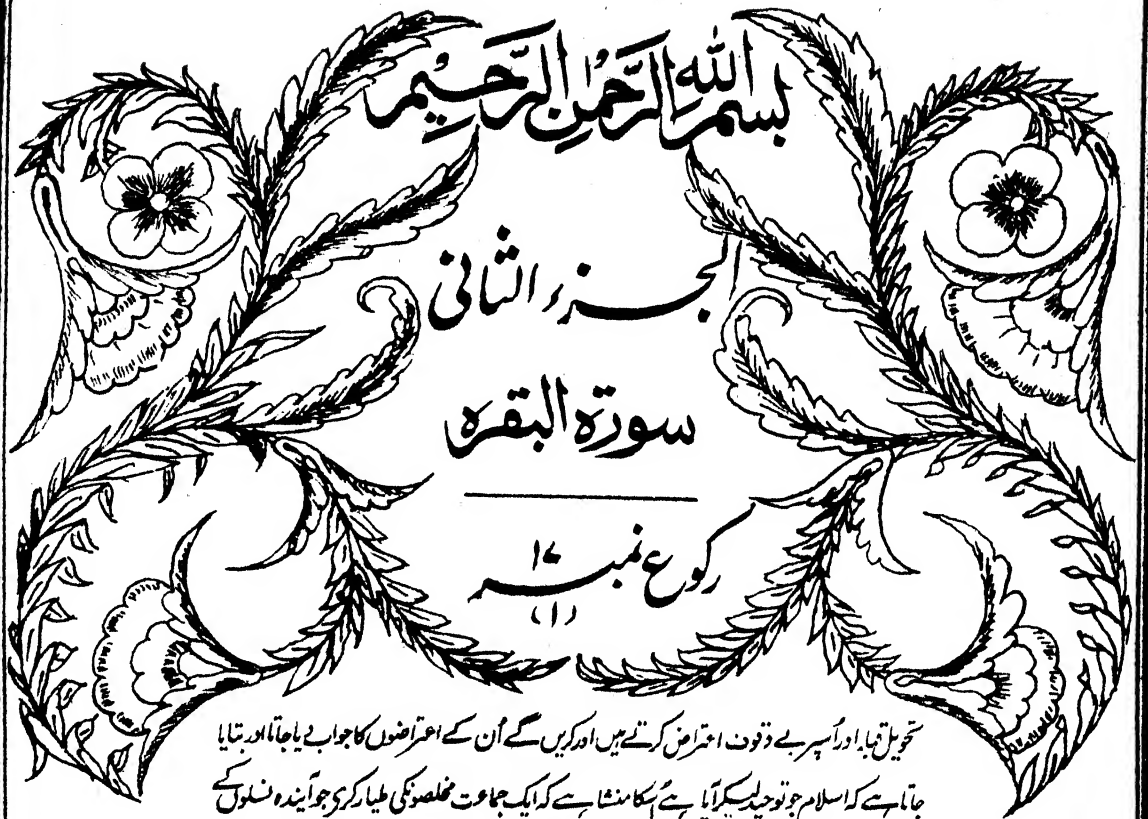 بسم الله الرحمن الرحيم
الجزء الثانی
سورة البقره
رکوع نمبر ۱۷
(۱)
تحویل قبلہ اور اُسپر بے وقوف اعتراض کرتے ہیں اور کریں گے اُن کے اعتراضوں کا جواب دیا جاتا اور بتایا
جاتا ہے کہ اسلام جو توحید لیکر آیا ہے اُسکا منشا ہے کہ ایک جماعت مخلصونکی طیار کری جو آیندہ نسلوں کے